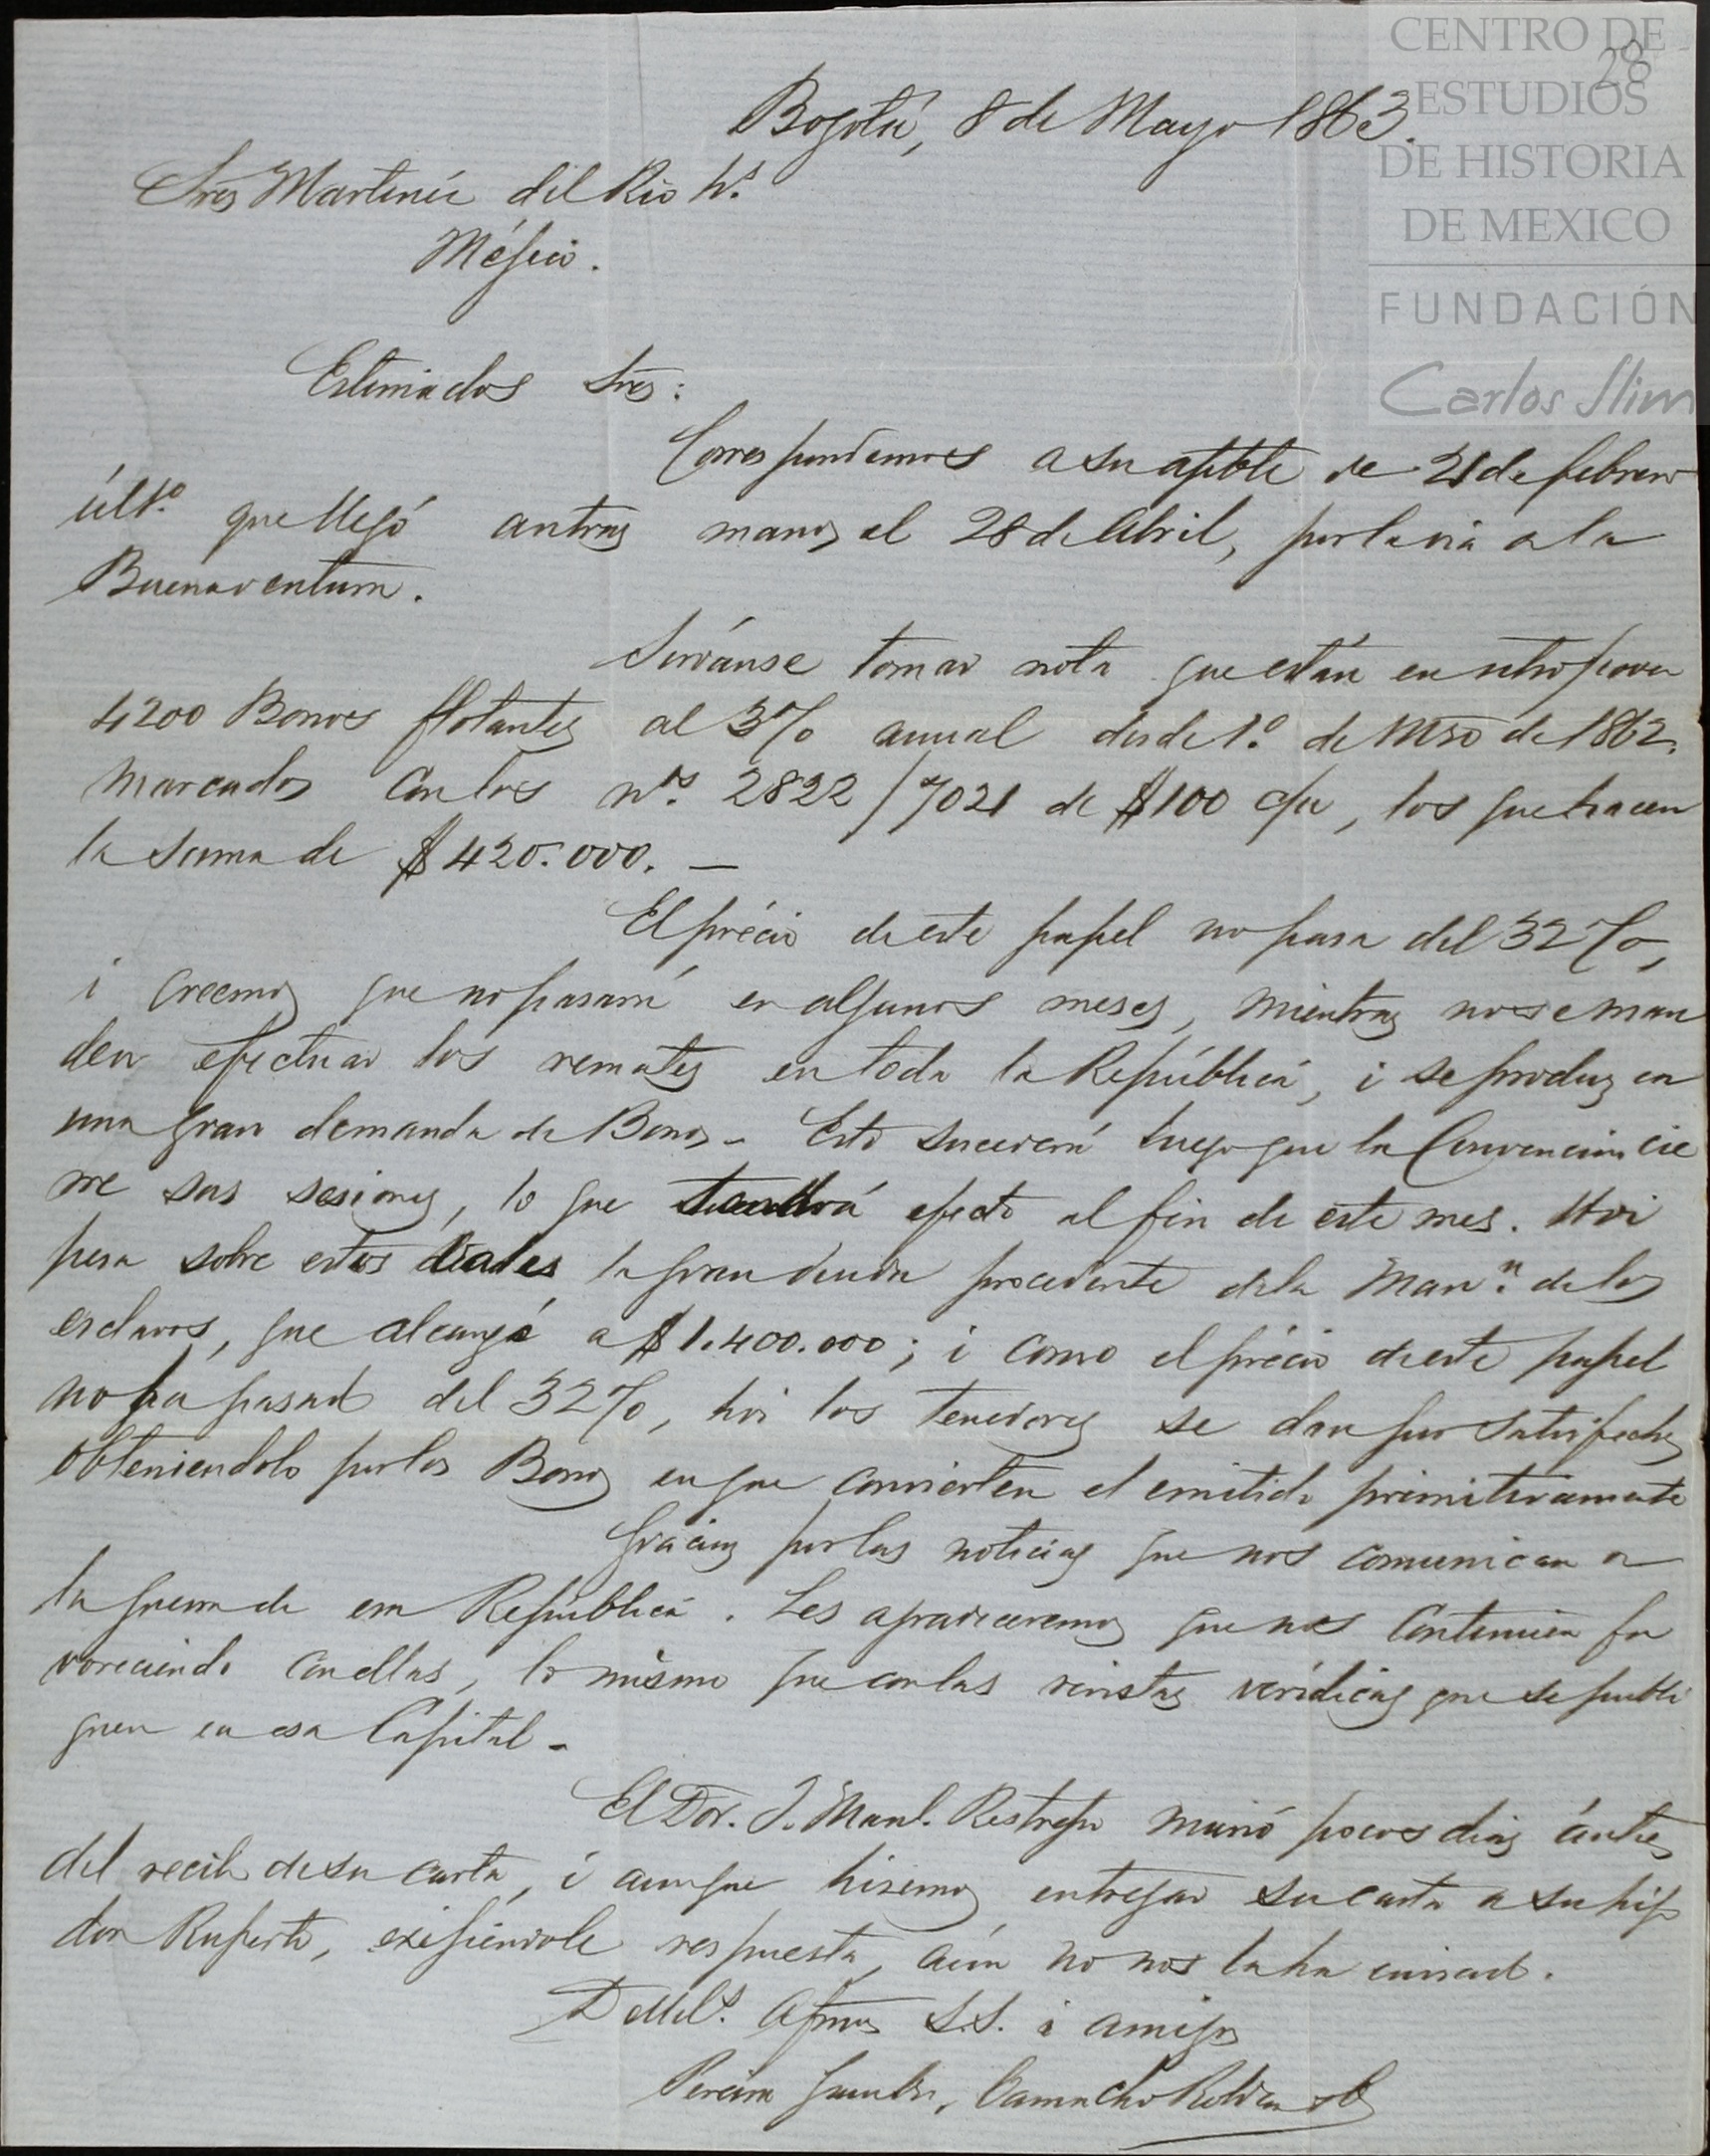 CENTRO DE
ESTUDIOS
DE HISTORIA
DE MEXICO
FUNDACIÓN
Carlos Slim
28
Bogotá, 8 de Mayo 1863.
Sres Martinéz del Rio hs.
Méjico.
Estimados Sres:
Correspondemos a su apble de 21 de febrero
últo. que llegó a ntras manos el 28 de Abril, por la via de la
Buenaventura.
Sirvánse tomar nota que están en ntro poder
4200 Bonos flotantes al 3% anual desde 1o. de Mzo de 1862.
marcados con los ns. 2822/7021 de $100 c/u, los que hacen
la suma de $420.000. —
El précio de este papel no pasa del 32%,
i creemos que no pasará en algunos meses, mientras no se man
den efectuar los remates en toda la República, i se produzca
una gran demanda de Bonos - Esto sucederá luego que la Convencion cie
rre sus sesiones, lo que tendrá efecto al fin de este mes. Hoi
pesa sobre estos la gran deuda procedente de la Mann. de los
esclavos, que alcanzó a $1.400.000; i como el précio de este papel
no ha pasado del 32%, hoi los tenedores se dan por satisfechos
obteniendolo por los Bonos en que convierten el emitido primitivamente
Gracias por las noticias que nos comunican de
la guerra de esa República. Les agradeceremos que nos continúen fa
voreciendo con ellas, lo mismo que con las revistas verídicas que se publi
quen en esa Capital -
El Dor. J. Manl. Restrepo murió pocos dias ántes
del recibo de su carta, i aunque hicimos entregar su carta a su hijo
don Ruperto, exijiéndole respuesta, aún no nos la ha enviado.
De Uds. Afmos S.S. i amigos
Pereira Gamba, Camacho Roldan & Ca